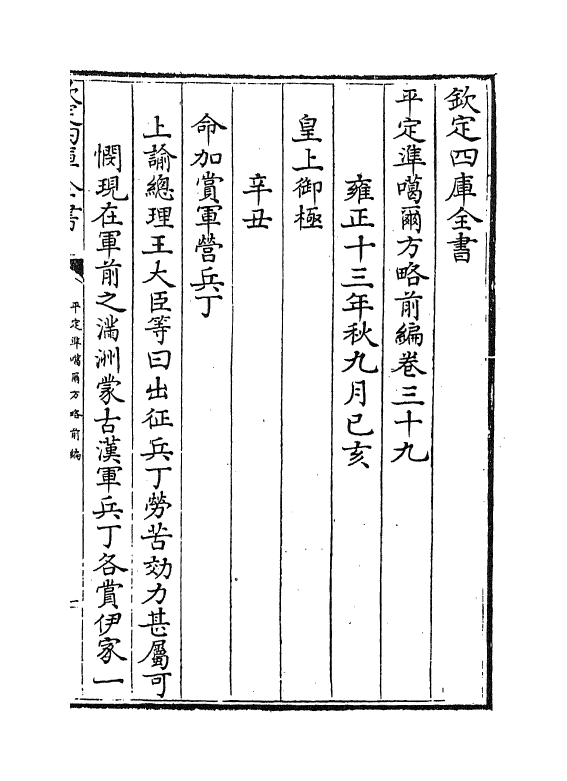 欽定四庫全書
平定準噶爾方略前編卷三十九
雍正十三年秋九月己亥
皇上御極
辛丑
命加賞軍營兵丁
上諭總理王大臣等曰出征兵丁勞苦効力甚屬可
憫現在軍前之滿洲蒙古漢軍兵丁各賞伊家一
欽定四庫全書
平定準噶爾方略前編
一